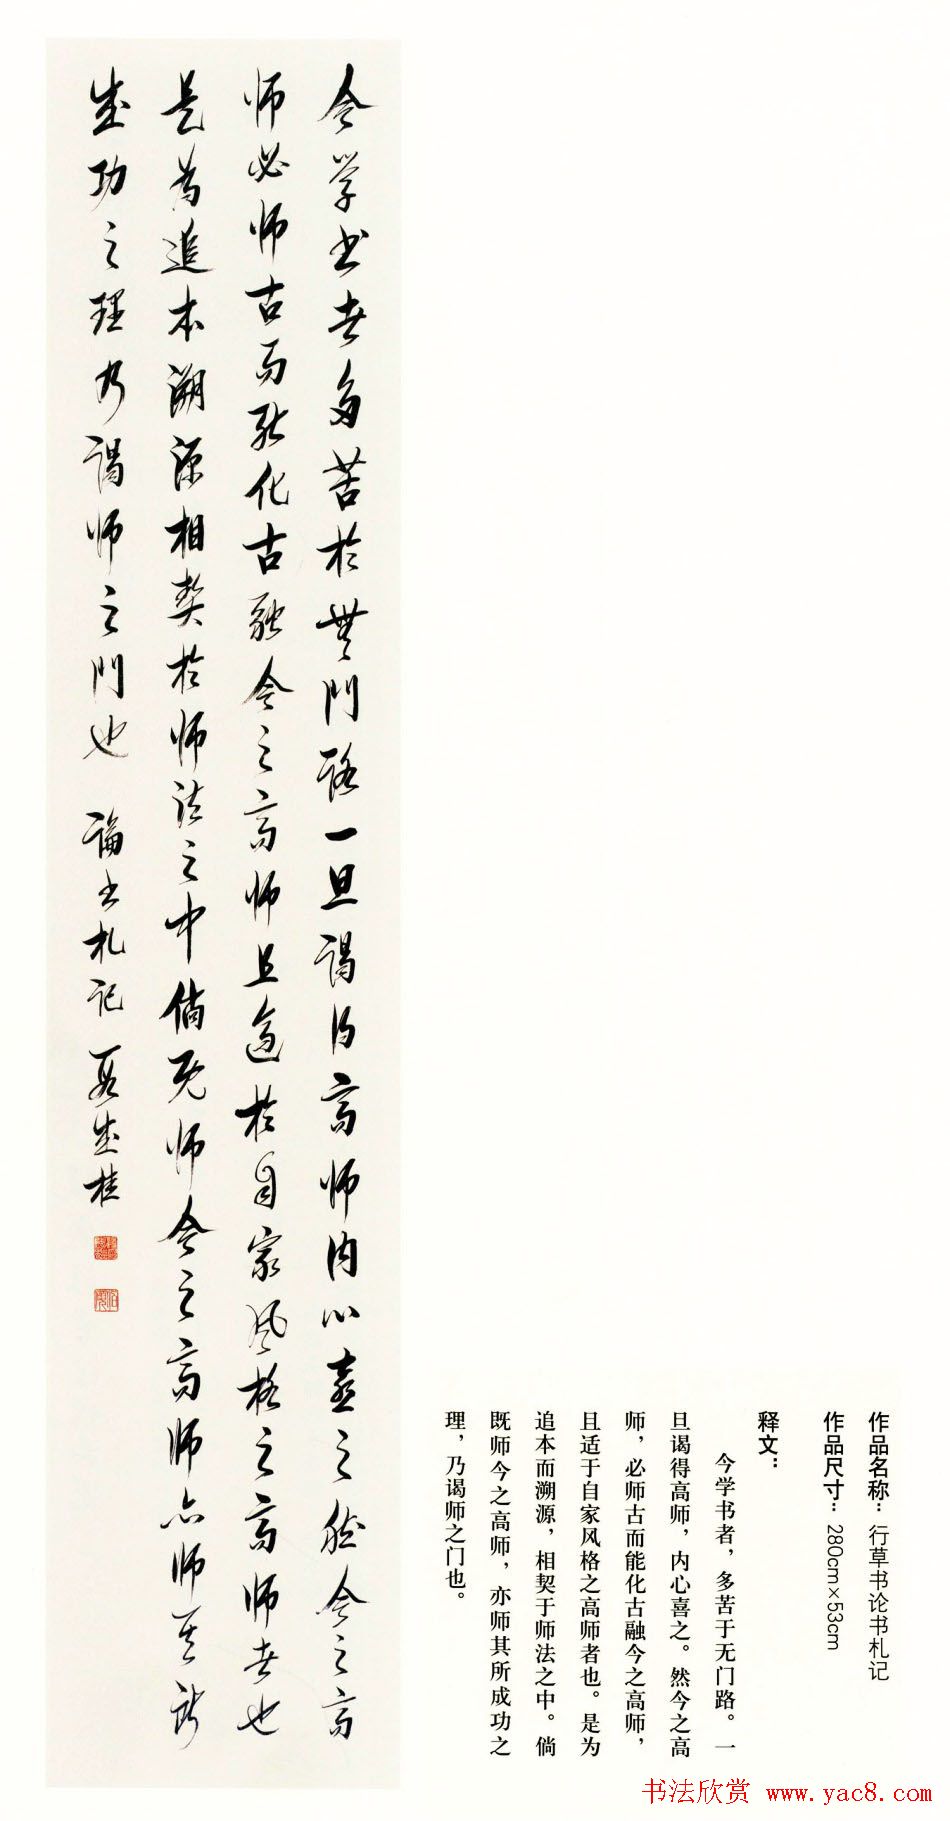 今学书者多苦於無門路一旦谒得高师内心喜之然今之高
师必师古而能化古融今之高师且適於自家风格之高师者也
是为追本溯源相契於师法之中倘既师今之高师亦师其所
成功之理乃谒师之門也 论书札记 段成桂
作品名称：行草书论书札记
作品尺寸：280cm×53cm
释文：
今学书者，多苦于无门路。一
旦谒得高师，内心喜之。然今之高
师，必师古而能化古融今之高师，
且适于自家风格之高师者也。是为
追本而溯源，相契于师法之中。倘
既师今之高师，亦师其所成功之
理，乃谒师之门也。
书法欣赏 www.yac8.com